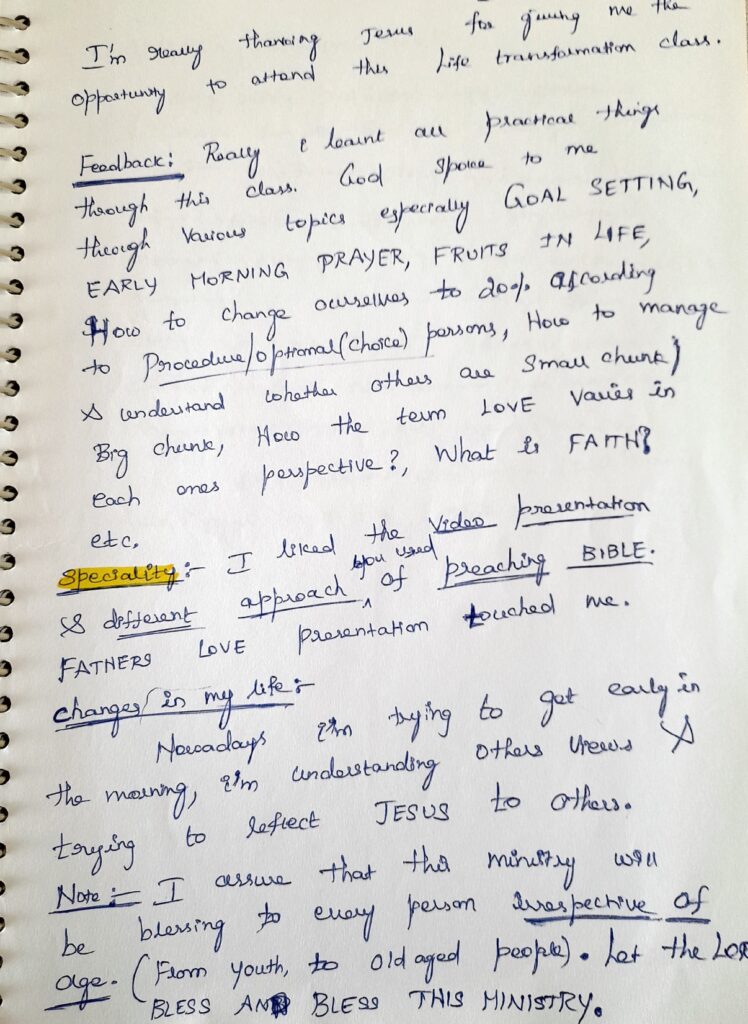 I'm really thanking Jesus for giving me the
opportunity to attend this Life transformation class.
Feedback: Really I learnt all practical things
through this class. God spoke to me
through various topics especially GOAL SETTING,
EARLY MORNING PRAYER, FRUITS IN LIFE,
How to change ourselves to 20% according
to Procedure/optional (choice) persons, How to manage
& understand whether others are Small chunk/
Big chunk, How the term LOVE varies in
each ones perspective?, What is FAITH?
etc.
Speciality:- I liked the Video presentation
& different approach you used of preaching BIBLE.
FATHERS LOVE presentation touched me.
changes in my life:-
Nowadays I'm trying to get early in
the morning, I'm understanding others views &
trying to reflect JESUS to others.
Note:- I assure that this ministry will
be blessing to every person irrespective of
age. (From youth, to old aged people). Let the Lord
BLESS AND BLESS THIS MINISTRY.